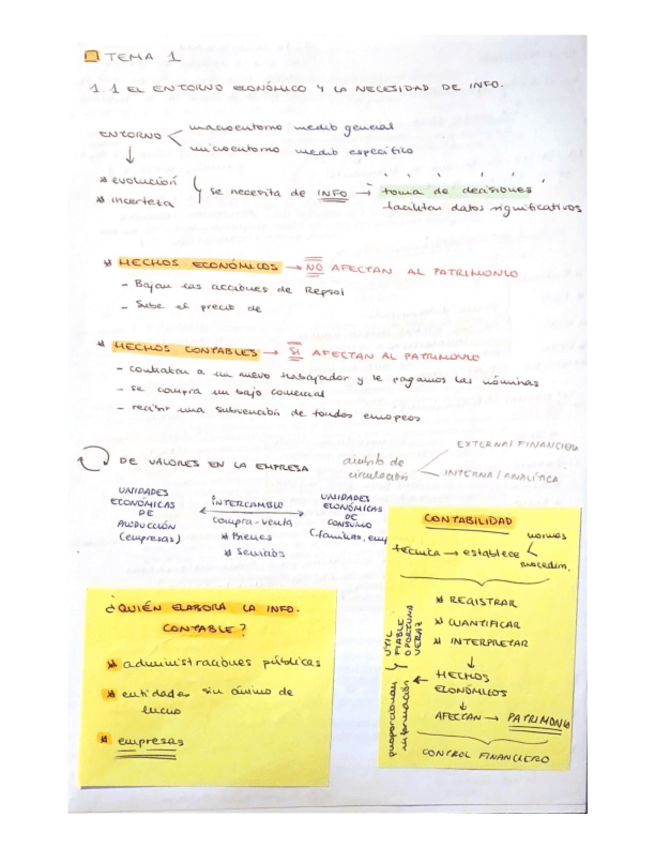 TEMA 1
1.1 EL ENTORNO ECONÓMICO Y LA NECESIDAD DE INFO.
ENTORNO
macroentorno medio general
microentorno medio específico
* evolución
* incerteza
se necesita de INFO → toma de decisiones
facilitar datos significativos
* HECHOS ECONÓMICOS → NO AFECTAN AL PATRIMONIO
- Bajan las acciones de Repsol
- Sube el precio de
* HECHOS CONTABLES → SI AFECTAN AL PATRIMONIO
- contratar a un nuevo trabajador y le pagamos las nóminas
- se compra un bajo comercial
- recibir una subvención de fondos europeos
DE VALORES EN LA EMPRESA
ámbito de circulación
EXTERNA/FINANCIERA
INTERNA/ANALÍTICA
UNIDADES
ECONÓMICAS
DE
PRODUCCIÓN
(empresas)
INTERCAMBIO
compra-venta
* Bienes
* Servicios
UNIDADES
ECONÓMICAS
DE
CONSUMO
(familias, emp
CONTABILIDAD
técnica → establece
normas
procedim.
* REGISTRAR
* CUANTIFICAR
* INTERPRETAR
↓
HECHOS
ECONÓMICOS
↓
AFECTAN → PATRIMONIO
CONTROL FINANCIERO
proporcionan
información
ÚTIL
FIABLE
OPORTUNA
VERAZ
¿QUIÉN ELABORA LA INFO.
CONTABLE?
* administraciones públicas
* entidades sin ánimo de
lucro
* empresas